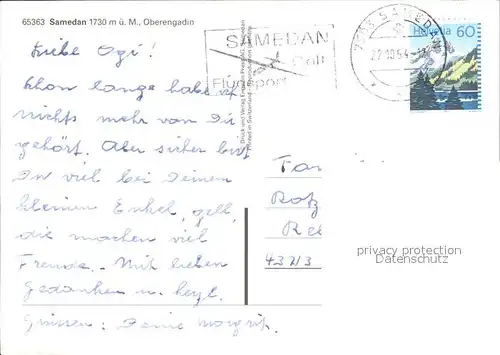 65363 Samedan 1730 m ü. M., Oberengadin
Liebe Ogi!
Schon lange habe ich
nichts mehr von Dir
gehört. Aber sicher bist
Du viel bei Deinen
kleinen Enkel, gell,
die machen viel
Freude. Mit lieben
Gedanken u. herzl.
Grüssen: Deine Margrit.
SAMEDAN
Golf
Flugsport
SAMEDAN
Helvetia 60
Druck und Verlag
Printed in Switzerland
Rotz
privacy protection
Datenschutz